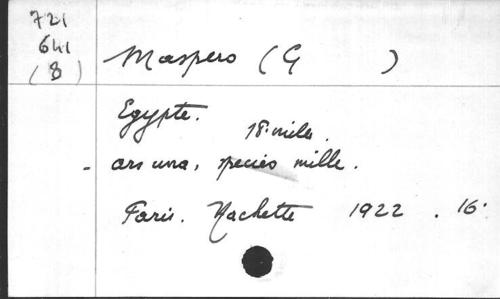 721
641
(8)
Maspero (G )
Egypte.
18e mille.
- ars una, species mille.
Paris. Hachette 1922. 16°